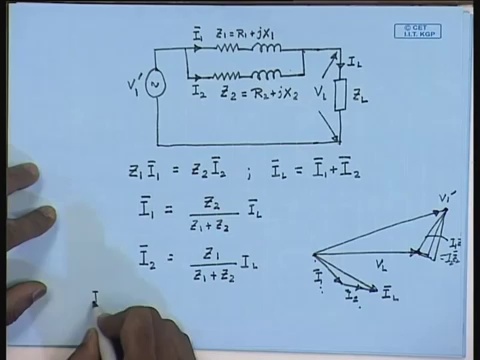 © CET
I.I.T. KGP
Ī₁ Z₁ = R₁ + jX₁
I_L
V₁′
I₂ Z₂ = R₂ + jX₂ V_L Z_L
Z₁Ī₁ = Z₂Ī₂ ; Ī_L = Ī₁ + Ī₂
Ī₁ = Z₂ / (Z₁ + Z₂) Ī_L
Ī₂ = Z₁ / (Z₁ + Z₂) I_L
V₁′
V_L
Ī₁
I₂
Ī_L
I